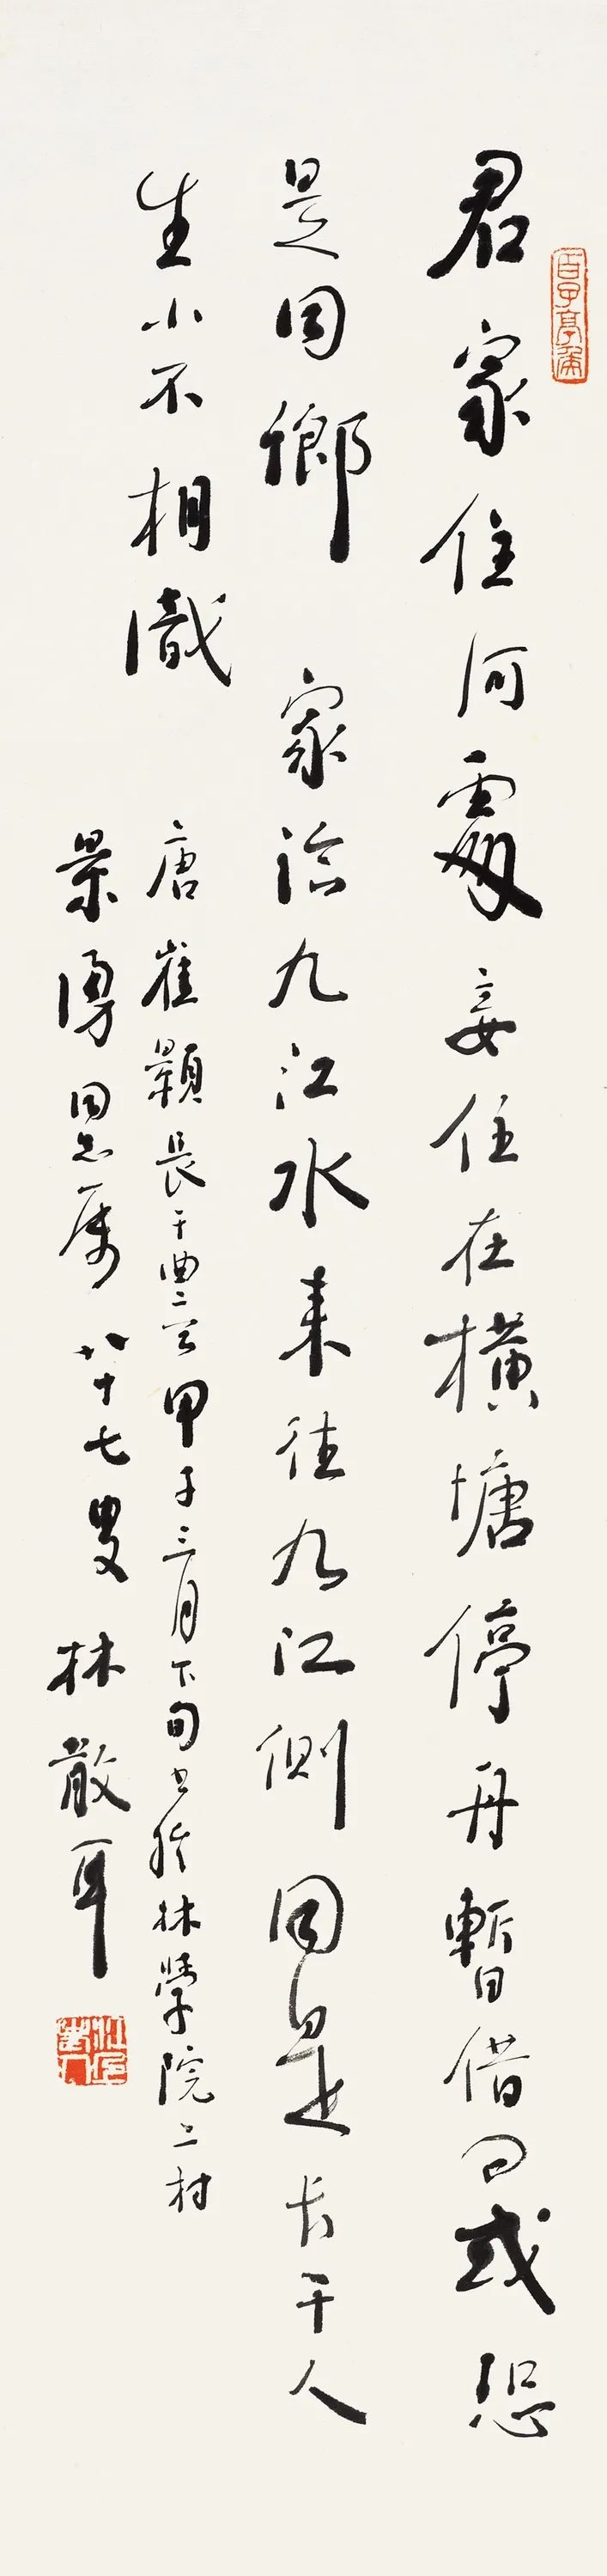 君家住何處妾住在橫塘停舟暫借問或恐
是同鄉 家臨九江水来往九江側同是长干人
生小不相識 唐崔顥長干曲二首甲子三月下旬書於林學院二村
景勇同志屬 八十七叟 林散耳